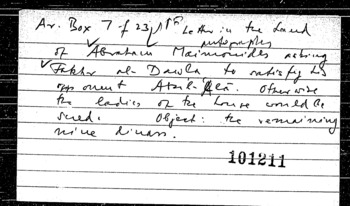 Ar. Box 7 f 23, 1st Letter in the hand
autographs
of Abraham Maimonides asking
Fakhr al-Dawla to satisfy his
opponent Abul-'Alā. Otherwise
the ladies of the house would be
sued. Object: the remaining
nine dinars.
101211